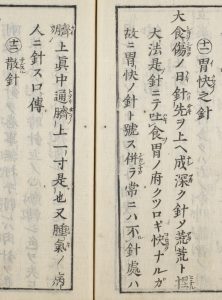 十一 胃快之針
大食傷ノ日針先ヲ上ヘ成深ク針メ荒荒ト捏
大法是針ニテ吐食胃ノ府クツロギ快ナルガ
故ニ胃快ノ針ト號ス併ラ常ニハ不針處ハ
臍上眞中通臍上二寸是也又腫氣ノ病
人ニ針スロ傳
十二 散針